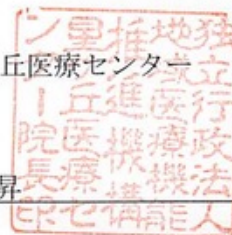 丘医療センター
昇
独立行政法人
地域医療機能
推進機構
星ヶ丘医療セ
ンター院長印